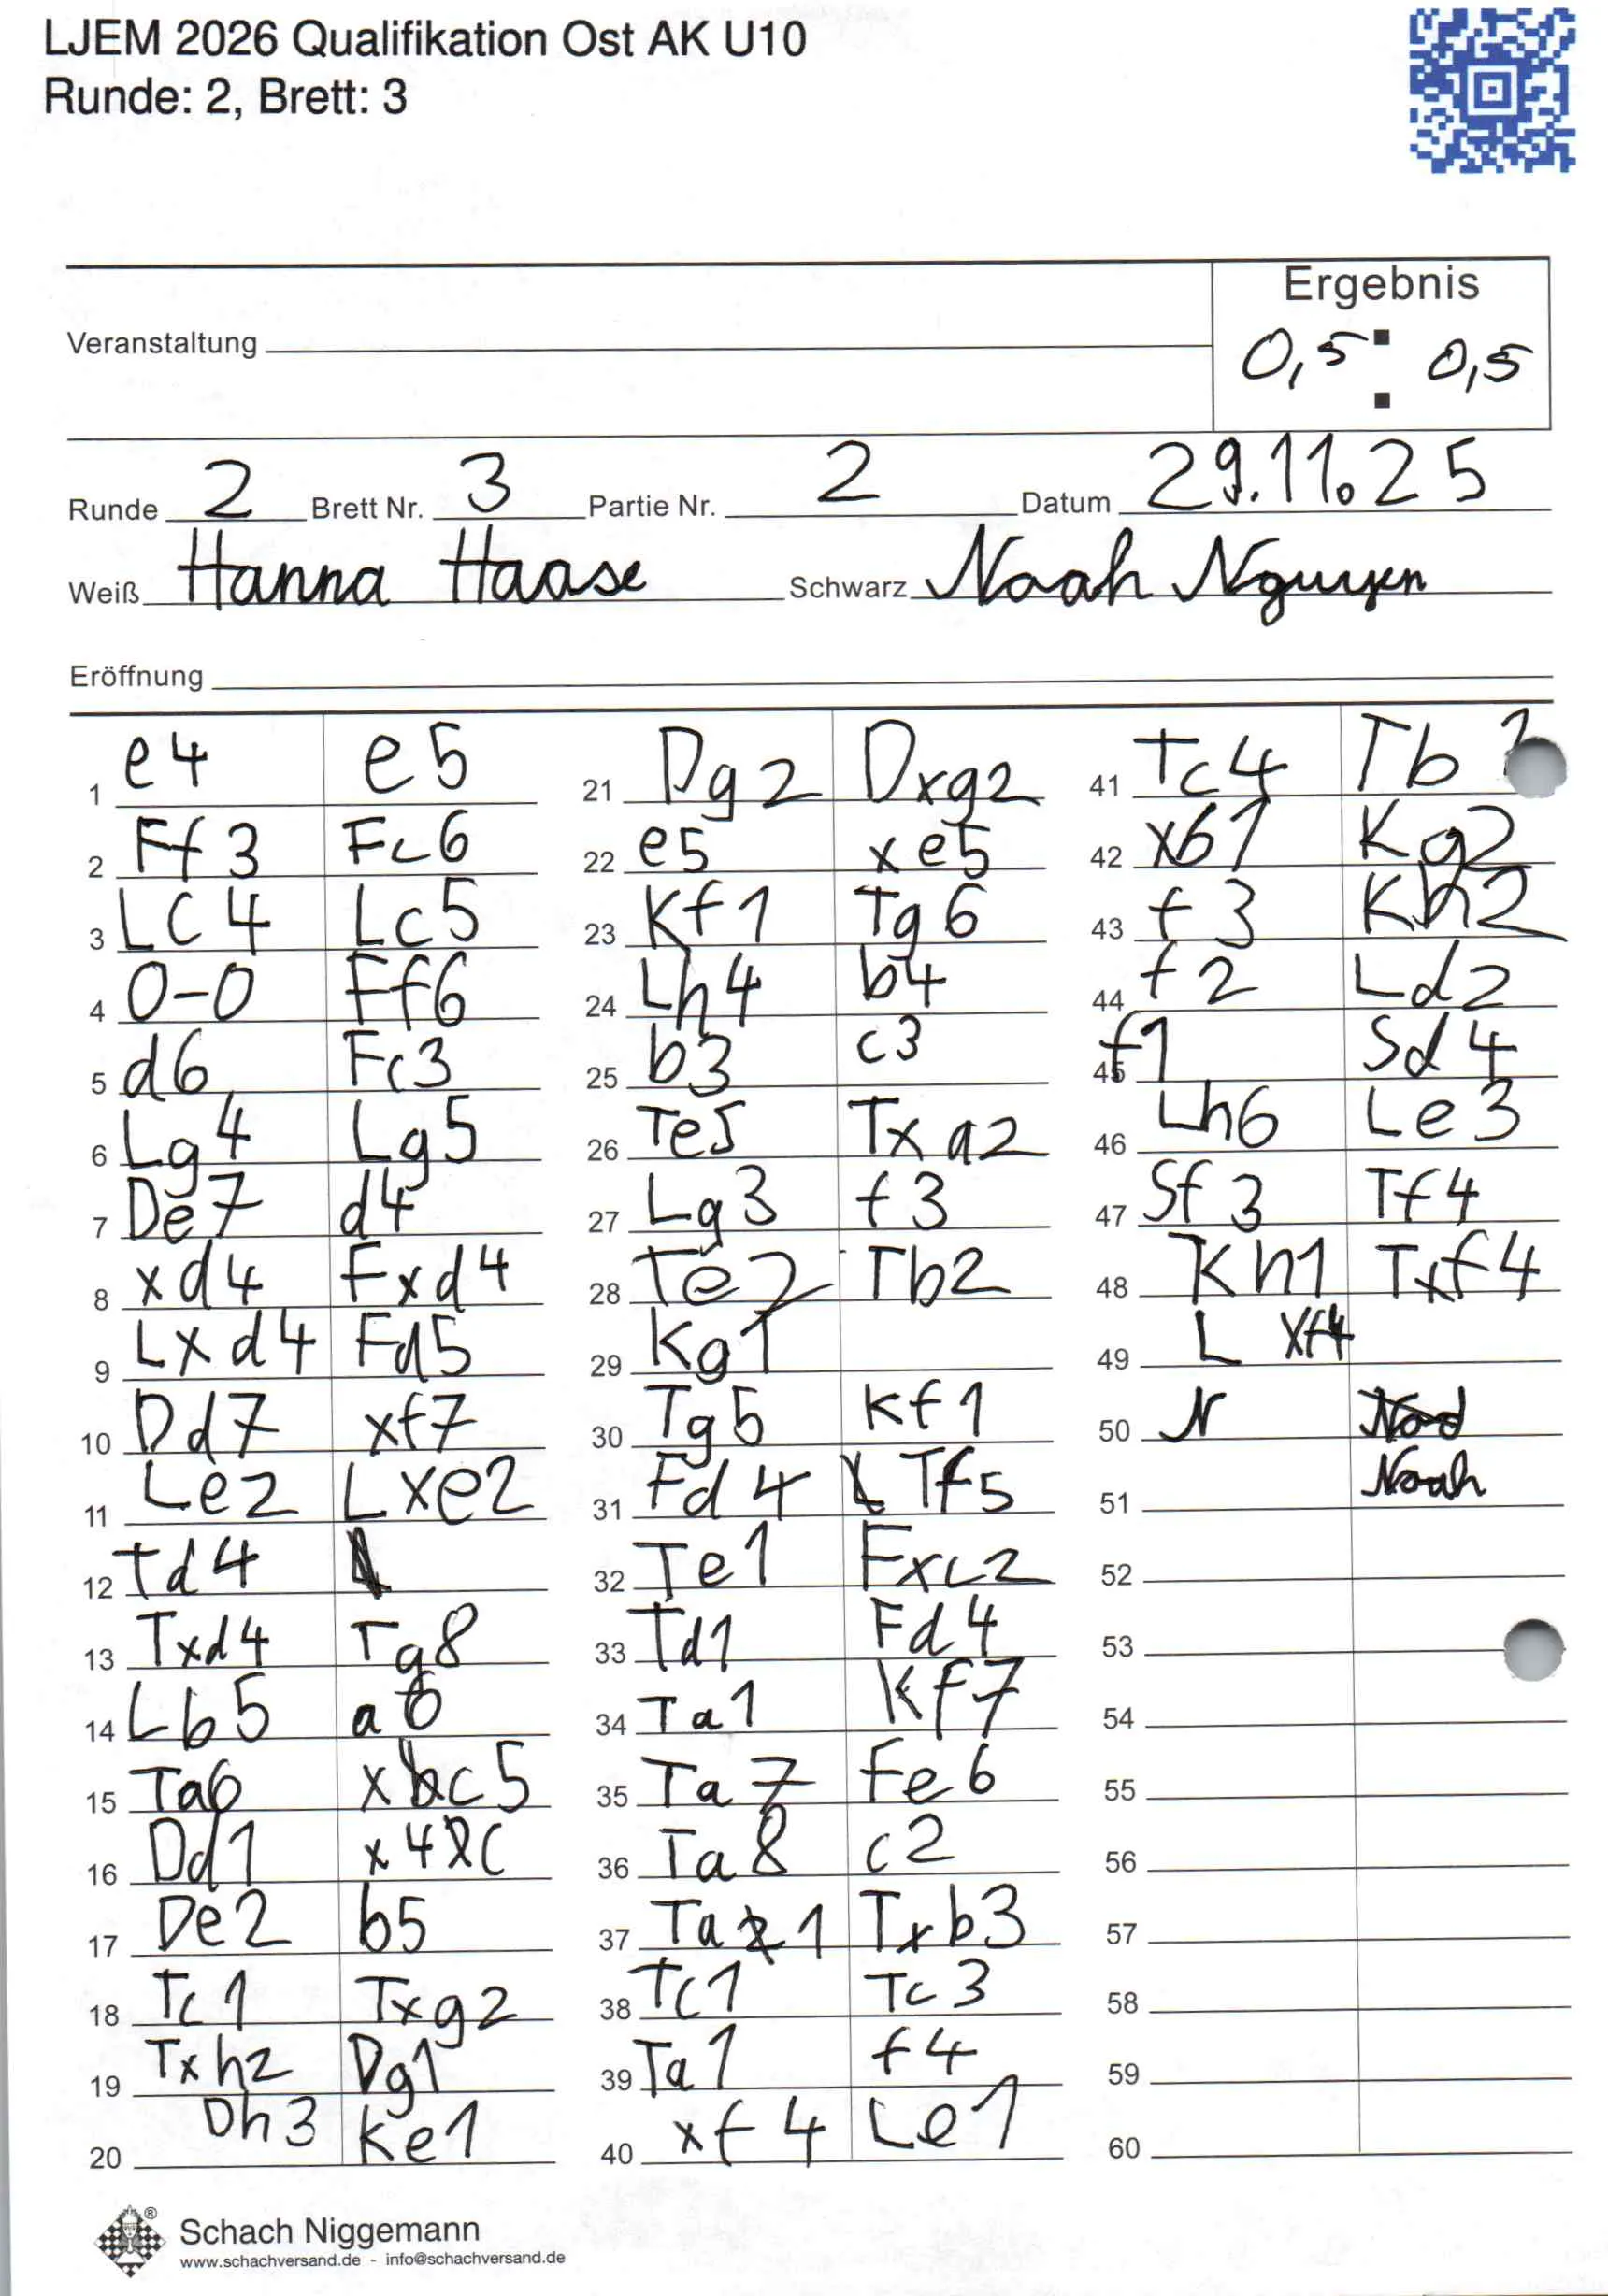 LJEM 2026 Qualifikation Ost AK U10
Runde: 2, Brett: 3
Ergebnis
Veranstaltung
0,5 : 0,5
Runde 2 Brett Nr. 3 Partie Nr. 2 Datum 29.11.25
Weiß Hanna Haase Schwarz Noah Nguyen
Eröffnung
1 e4 e5
2 Ff3 Fc6
3 LC4 Lc5
4 0-0 Ff6
5 d6 Fc3
6 Lg4 Lg5
7 De7 d4
8 xd4 Fxd4
9 Lxd4 Fd5
10 Dd7 xf7
11 Le2 Lxe2
12 Td4
13 Txd4 Tg8
14 Lb5 a6
15 Ta6 xc5
16 Dd1 x4c
17 De2 b5
18 Tc1 Txg2
19 Txh2 Dg1
20 Dh3 Ke1
21 Dg2 Dxg2
22 e5 xe5
23 Kf1 Tg6
24 Lh4 b4
25 b3 c3
26 Te5 Txa2
27 Lg3 f3
28 Te2 Tb2
29 Kg1
30 Tg5 Kf1
31 Fd4 Tf5
32 Te1 Fxc2
33 Td1 Fd4
34 Ta1 Kf7
35 Ta7 Fe6
36 Ta8 c2
37 Ta1 Txb3
38 Tc1 Tc3
39 Ta1 f4
40 xf4 Le1
41 Tc4 Tb1
42 xb1 Kg2
43 f3 Kh2
44 f2 Ld2
45 f1 Sd4
46 Lh6 Le3
47 Sf3 Tf4
48 Kh1 Txf4
49 L xf4
50 N
51 Noah
52
53
54
55
56
57
58
59
60
®
Schach Niggemann
www.schachversand.de - info@schachversand.de